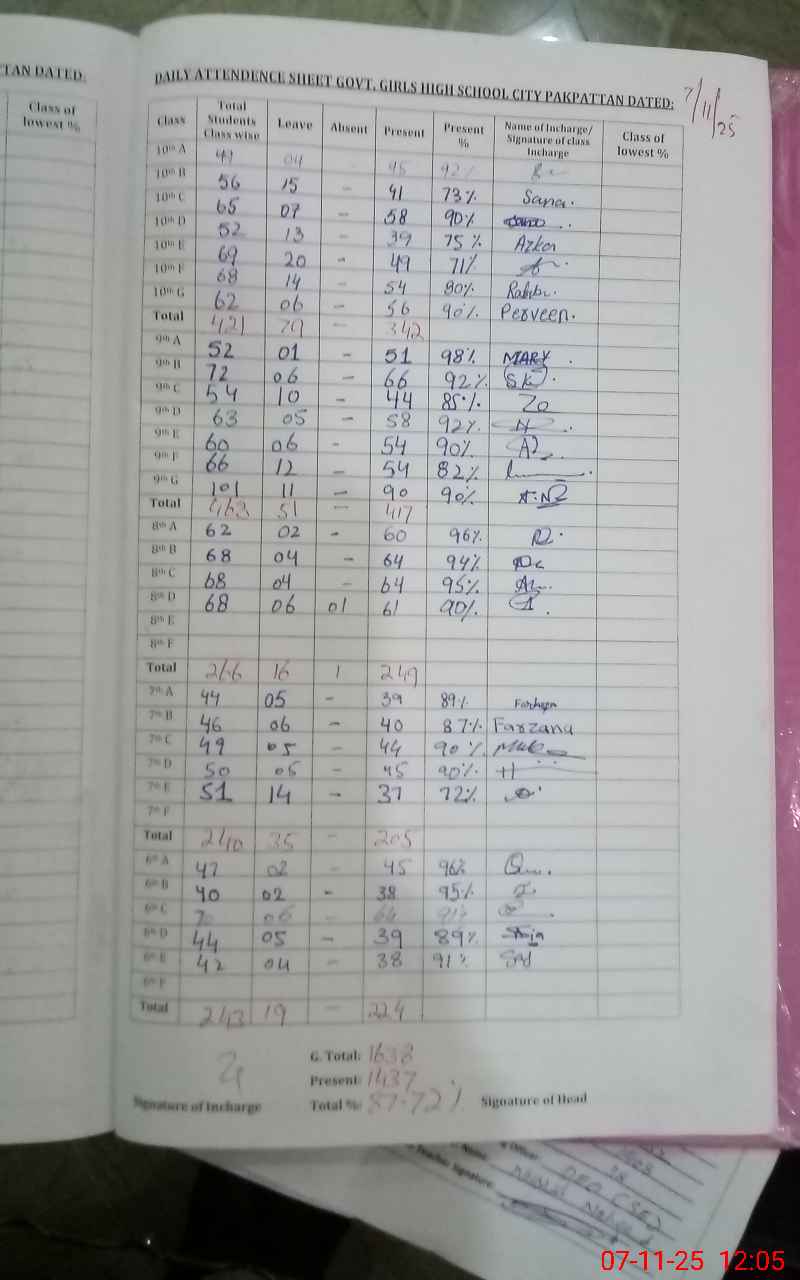 TAN DATED:
Class of lowest %
DAILY ATTENDENCE SHEET GOVT. GIRLS HIGH SCHOOL CITY PAKPATTAN DATED: 7/11/25
Class Total Students Class wise Leave Absent Present Present % Name of Incharge/ Signature of class Incharge Class of lowest %
10th A 49 04 45 92%
10th B 56 15 - 41 73% Sana.
10th C 65 07 - 58 90%
10th D 52 13 - 39 75% Azka
10th E 69 20 - 49 71%
10th F 68 14 - 54 80%
10th G 62 06 - 56 90% Perveen.
Total 421 79 - 342
9th A 52 01 - 51 98% MARY
9th B 72 06 - 66 92% SK
9th C 54 10 - 44 85% Za
9th D 63 05 - 58 92%
9th E 60 06 - 54 90%
9th F 66 12 - 54 82%
9th G 101 11 - 90 90%
Total 463 51 - 417
8th A 62 02 - 60 96%
8th B 68 04 - 64 94%
8th C 68 04 - 64 95%
8th D 68 06 01 61 90%
8th E
8th F
Total 266 16 1 249
7th A 44 05 - 39 89%
7th B 46 06 - 40 87% Farzana
7th C 49 05 - 44 90%
7th D 50 05 - 45 90%
7th E 51 14 - 37 72%
7th F
Total 240 35 - 205
6th A 47 02 - 45 96%
6th B 40 02 - 38 95%
6th C 70 06 - 64 91%
6th D 44 05 - 39 89%
6th E 42 04 - 38 91%
6th F
Total 243 19 - 224
G. Total: 1638
Present: 1437
Signature of Incharge Total %: 87.72% Signature of Head
Teacher Signature:
07-11-25 12:05